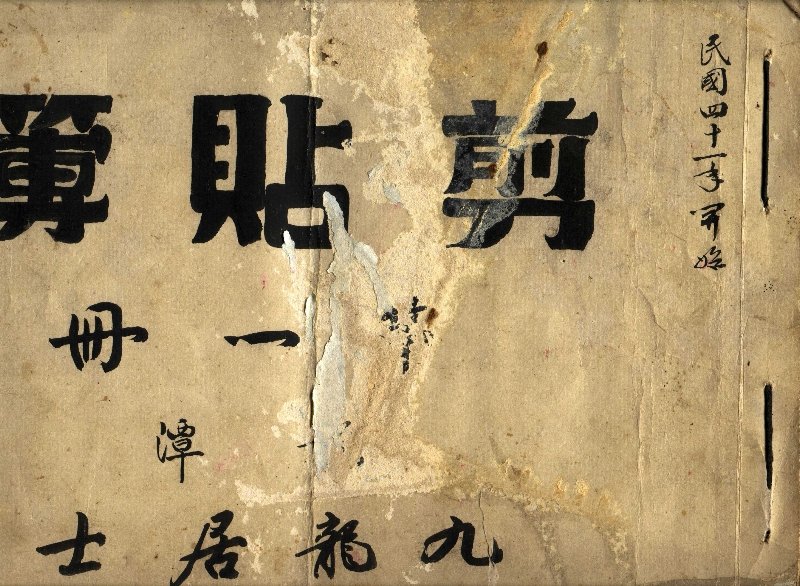 民國四十一年開始
剪貼簿
第一冊
潭
九龍居士